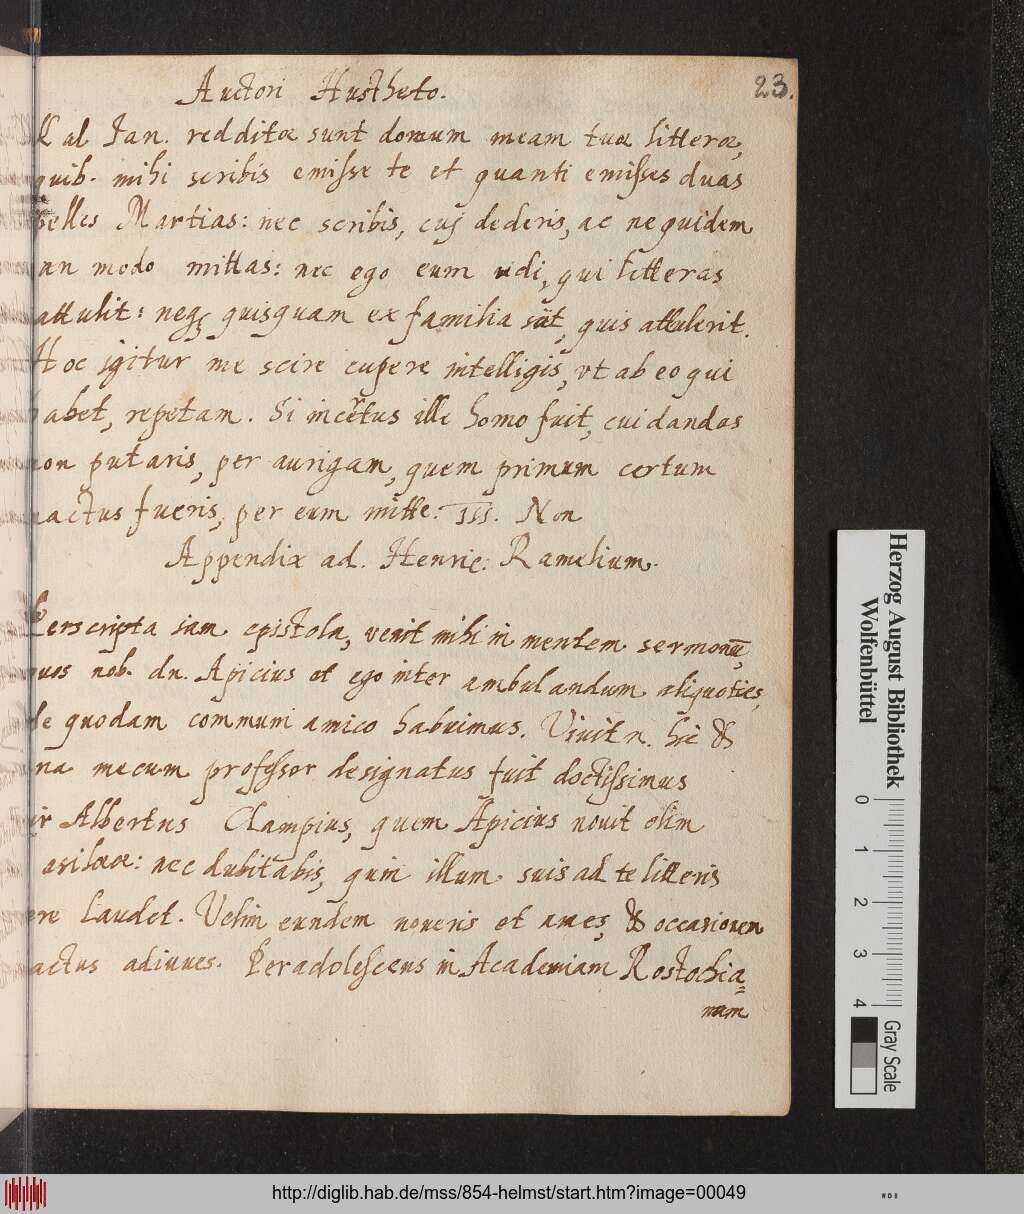 23.
Auctori Hustheto.
Kal Jan. redditæ sunt domum meam tuæ litteræ,
quib. mihi scribis emisse te et quanti emisses duas
pelles Martias: nec scribis, cuj dederis, ac ne quidem
an modo mittas: nec ego eum vidi, qui litteras
attulit: neq; quisquam ex familia sciit, quis attulerit.
Hoc igitur me scire cupere intelligis, vt ab eo qui
habet, repetam. Si incertus ille homo fuit, cui dandas
non putaris, per aurigam, quem primum certum
nactus fueris, per eum mitte. III. Non
Appendix ad. Henric: Ramelium.
Perscripta iam epistola, venit mihi in mentem sermonū,
quos nob. dn. Apicius et ego inter ambulandum aliquoties,
de quodam communi amico habuimus. Viuit n. hic &
na mecum professor designatus fuit doctissimus
ir Albertus Clampius, quem Apicius novit olim
asileæ: nec dubitabis, quin illum suis ad te litteris
ere laudet. Velim eundem noveris et ames, & occasionem
actus adiuves. Peradolescens in Academiam Rostochia„
nam
Herzog August Bibliothek
Wolfenbüttel
0 1 2 3 4
Gray Scale
http://diglib.hab.de/mss/854-helmst/start.htm?image=00049